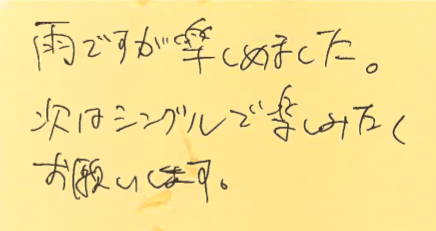 雨ですが楽しめました。
次はシングルで楽しみたく
お願いします。